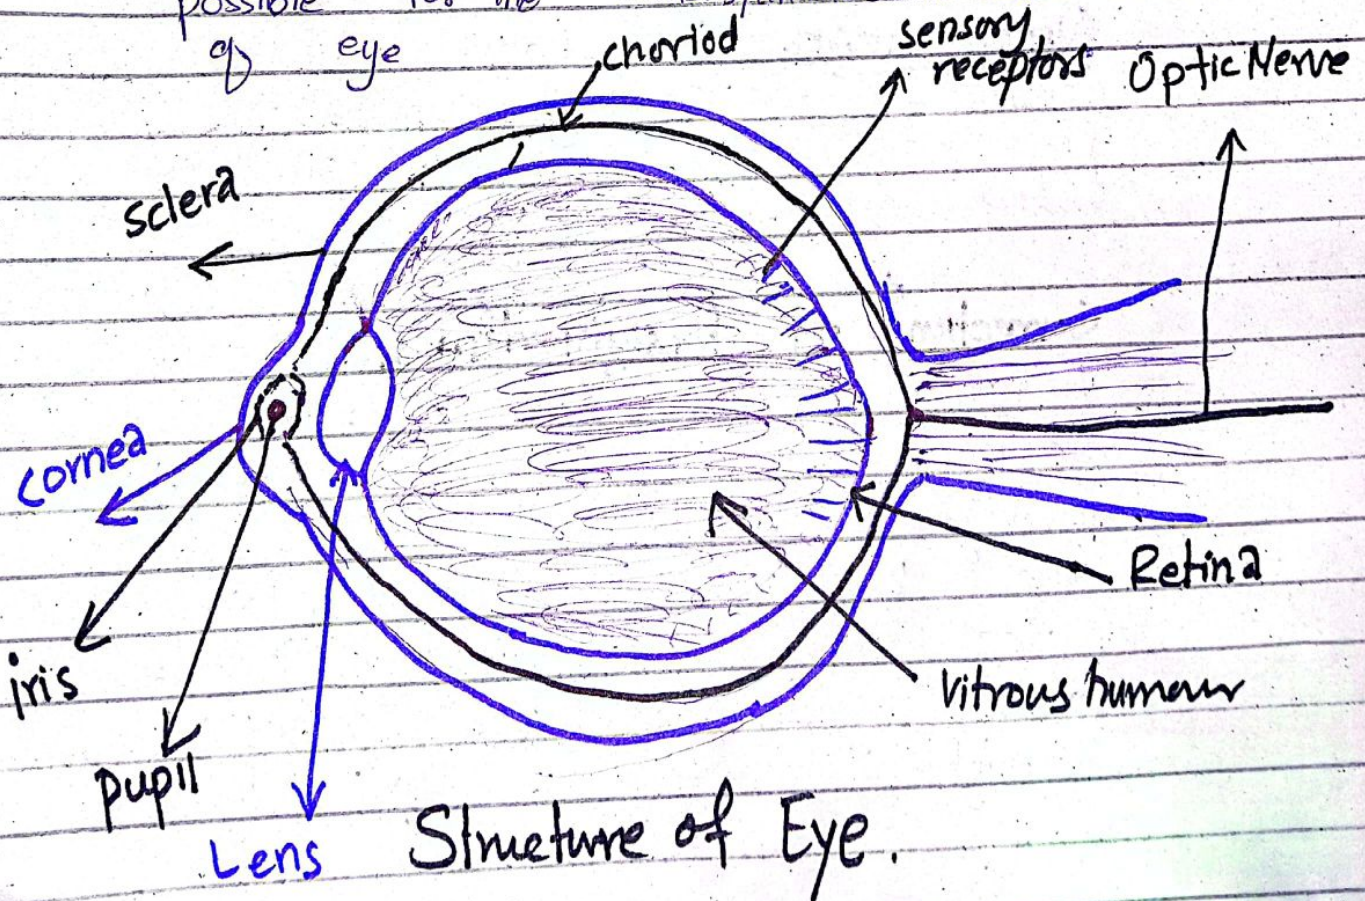 possible
of eye
choriod
sensory
receptors
Optic Nerve
sclera
cornea
Retina
iris
Vitrous humour
pupil
Lens
Structure of Eye.